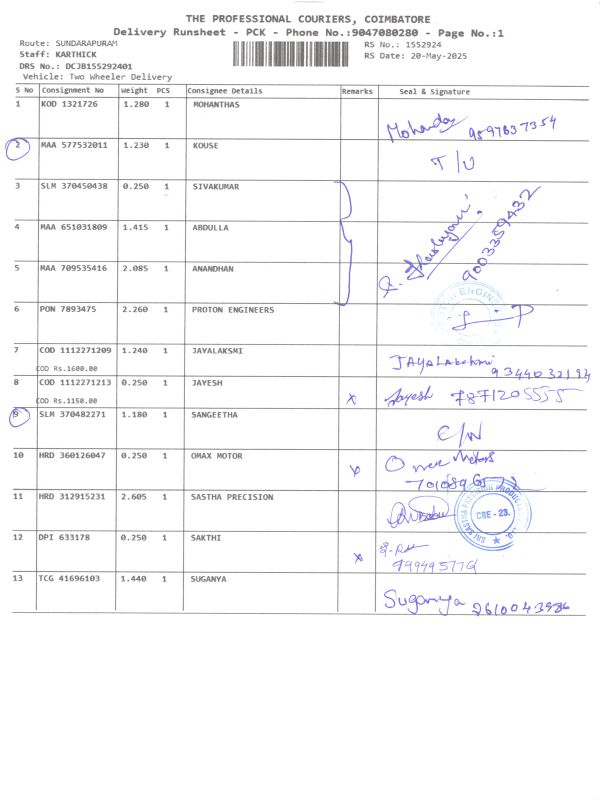 THE PROFESSIONAL COURIERS, COIMBATORE
Delivery Runsheet - PCK - Phone No.:9047080280 - Page No.:1
Route: SUNDARAPURAM RS No.: 1552924
Staff: KARTHICK RS Date: 20-May-2025
DRS No.: DCJB155292401
Vehicle: Two Wheeler Delivery
S No Consignment No Weight PCS Consignee Details Remarks Seal & Signature
1 KOD 1321726 1.280 1 MOHANTHAS
Mohandas
2 MAA 577532011 1.230 1 KOUSE
T/U
3 SLM 370450438 0.250 1 SIVAKUMAR
4 MAA 651031809 1.415 1 ABDULLA
9003359432
5 MAA 709535416 2.085 1 ANANDHAN
6 PON 7893475 2.260 1 PROTON ENGINEERS
7 COD 1112271209 1.240 1 JAYALAKSMI
COD Rs.1600.00 JAYALakshmi 9344032194
8 COD 1112271213 0.250 1 JAYESH
COD Rs.1150.00 x Jayesh 7871205555
9 SLM 370482271 1.180 1 SANGEETHA
C/N
10 HRD 360126047 0.250 1 OMAX MOTOR
x Omax Motors
11 HRD 312915231 2.605 1 SASTHA PRECISION
CBE - 23.
12 DPI 633178 0.250 1 SAKTHI
x
13 TCG 41696103 1.440 1 SUGANYA
Suganya